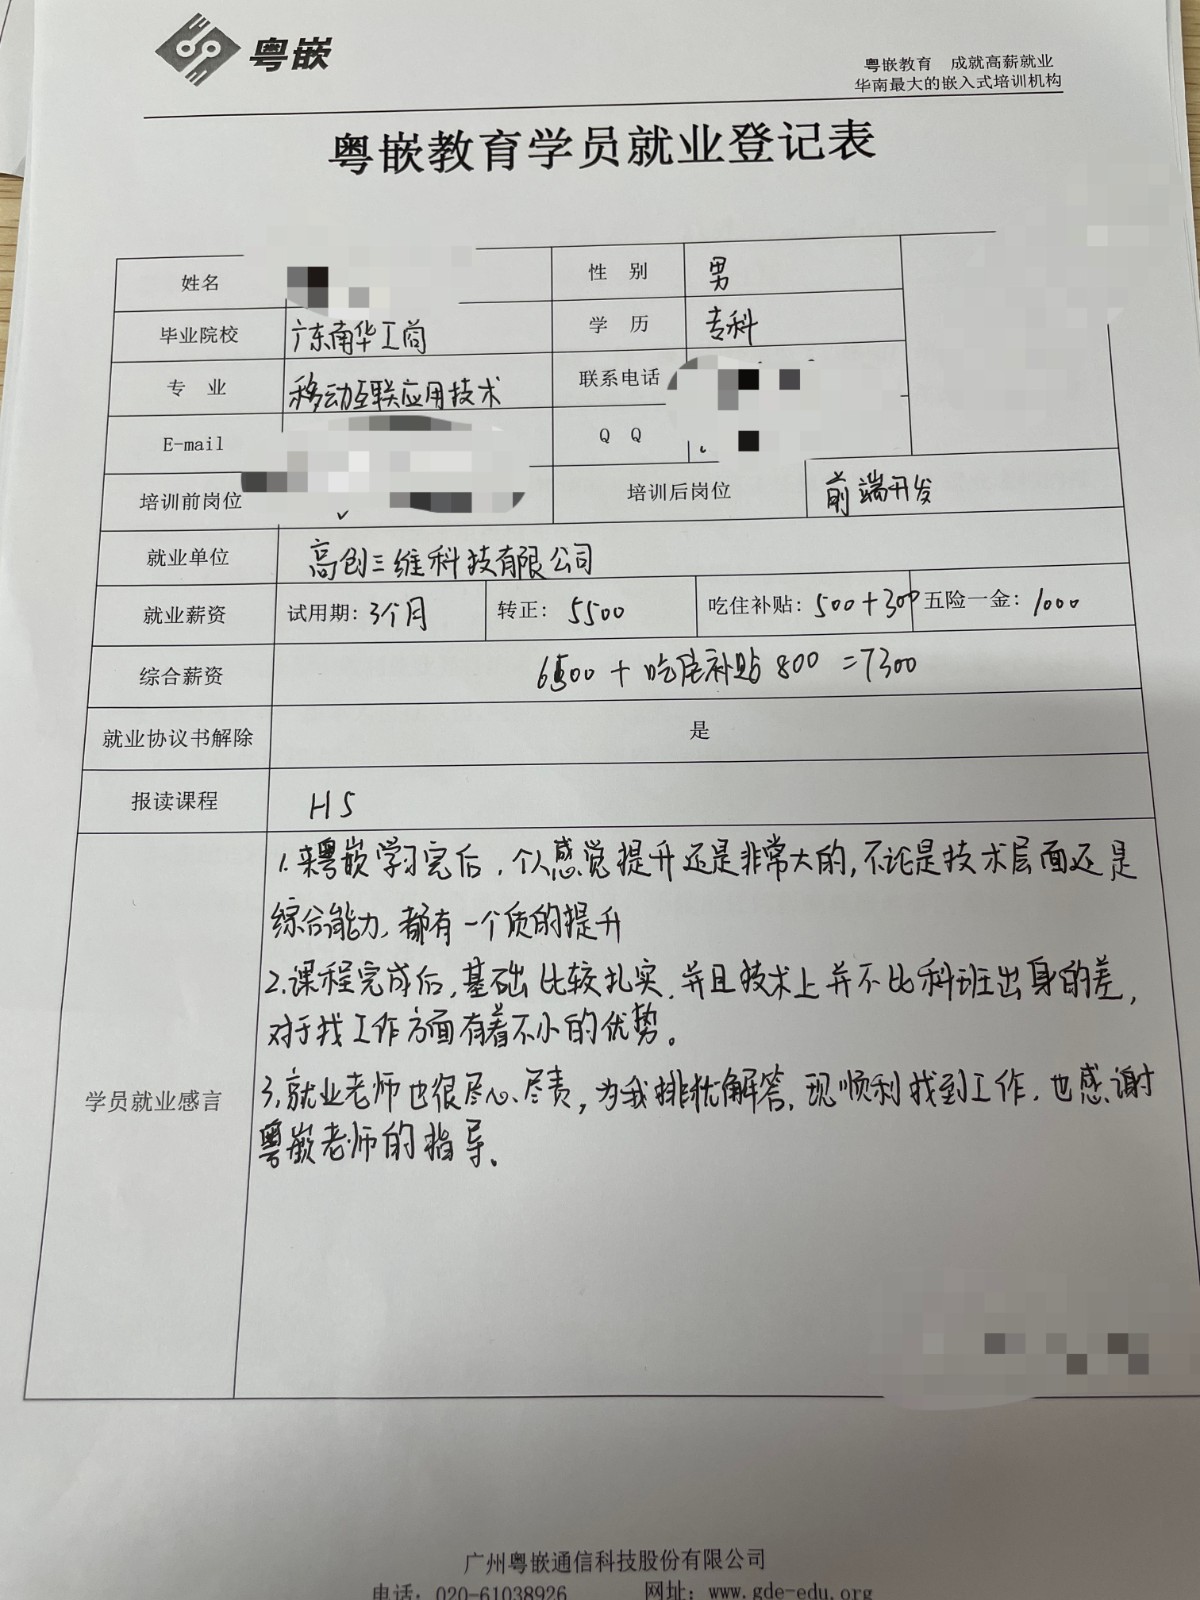 粤嵌
粤嵌教育 成就高薪就业
华南最大的嵌入式培训机构
粤嵌教育学员就业登记表
姓名 性 别 男
毕业院校 广东南华工商 学 历 专科
专 业 移动互联应用技术 联系电话
E-mail Q Q
培训前岗位 培训后岗位 前端开发
就业单位 高创三维科技有限公司
就业薪资 试用期: 3个月 转正: 5500 吃住补贴: 500+300 五险一金: 1000
综合薪资 6500 + 吃住补贴 800 =7300
就业协议书解除 是
报读课程 H5
1.来粤嵌学习完后,个人感觉提升还是非常大的,不论是技术层面还是
综合能力,都有一个质的提升
2.课程完成后,基础比较扎实,并且技术上并不比科班出身的差,
对于找工作方面有着不小的优势。
学员就业感言
3,就业老师也很尽心、尽责,为我排忧解答,现顺利找到工作,也感谢
粤嵌老师的指导。
广州粤嵌通信科技股份有限公司
电话: 020-61038926 网址: www.gde-edu.org